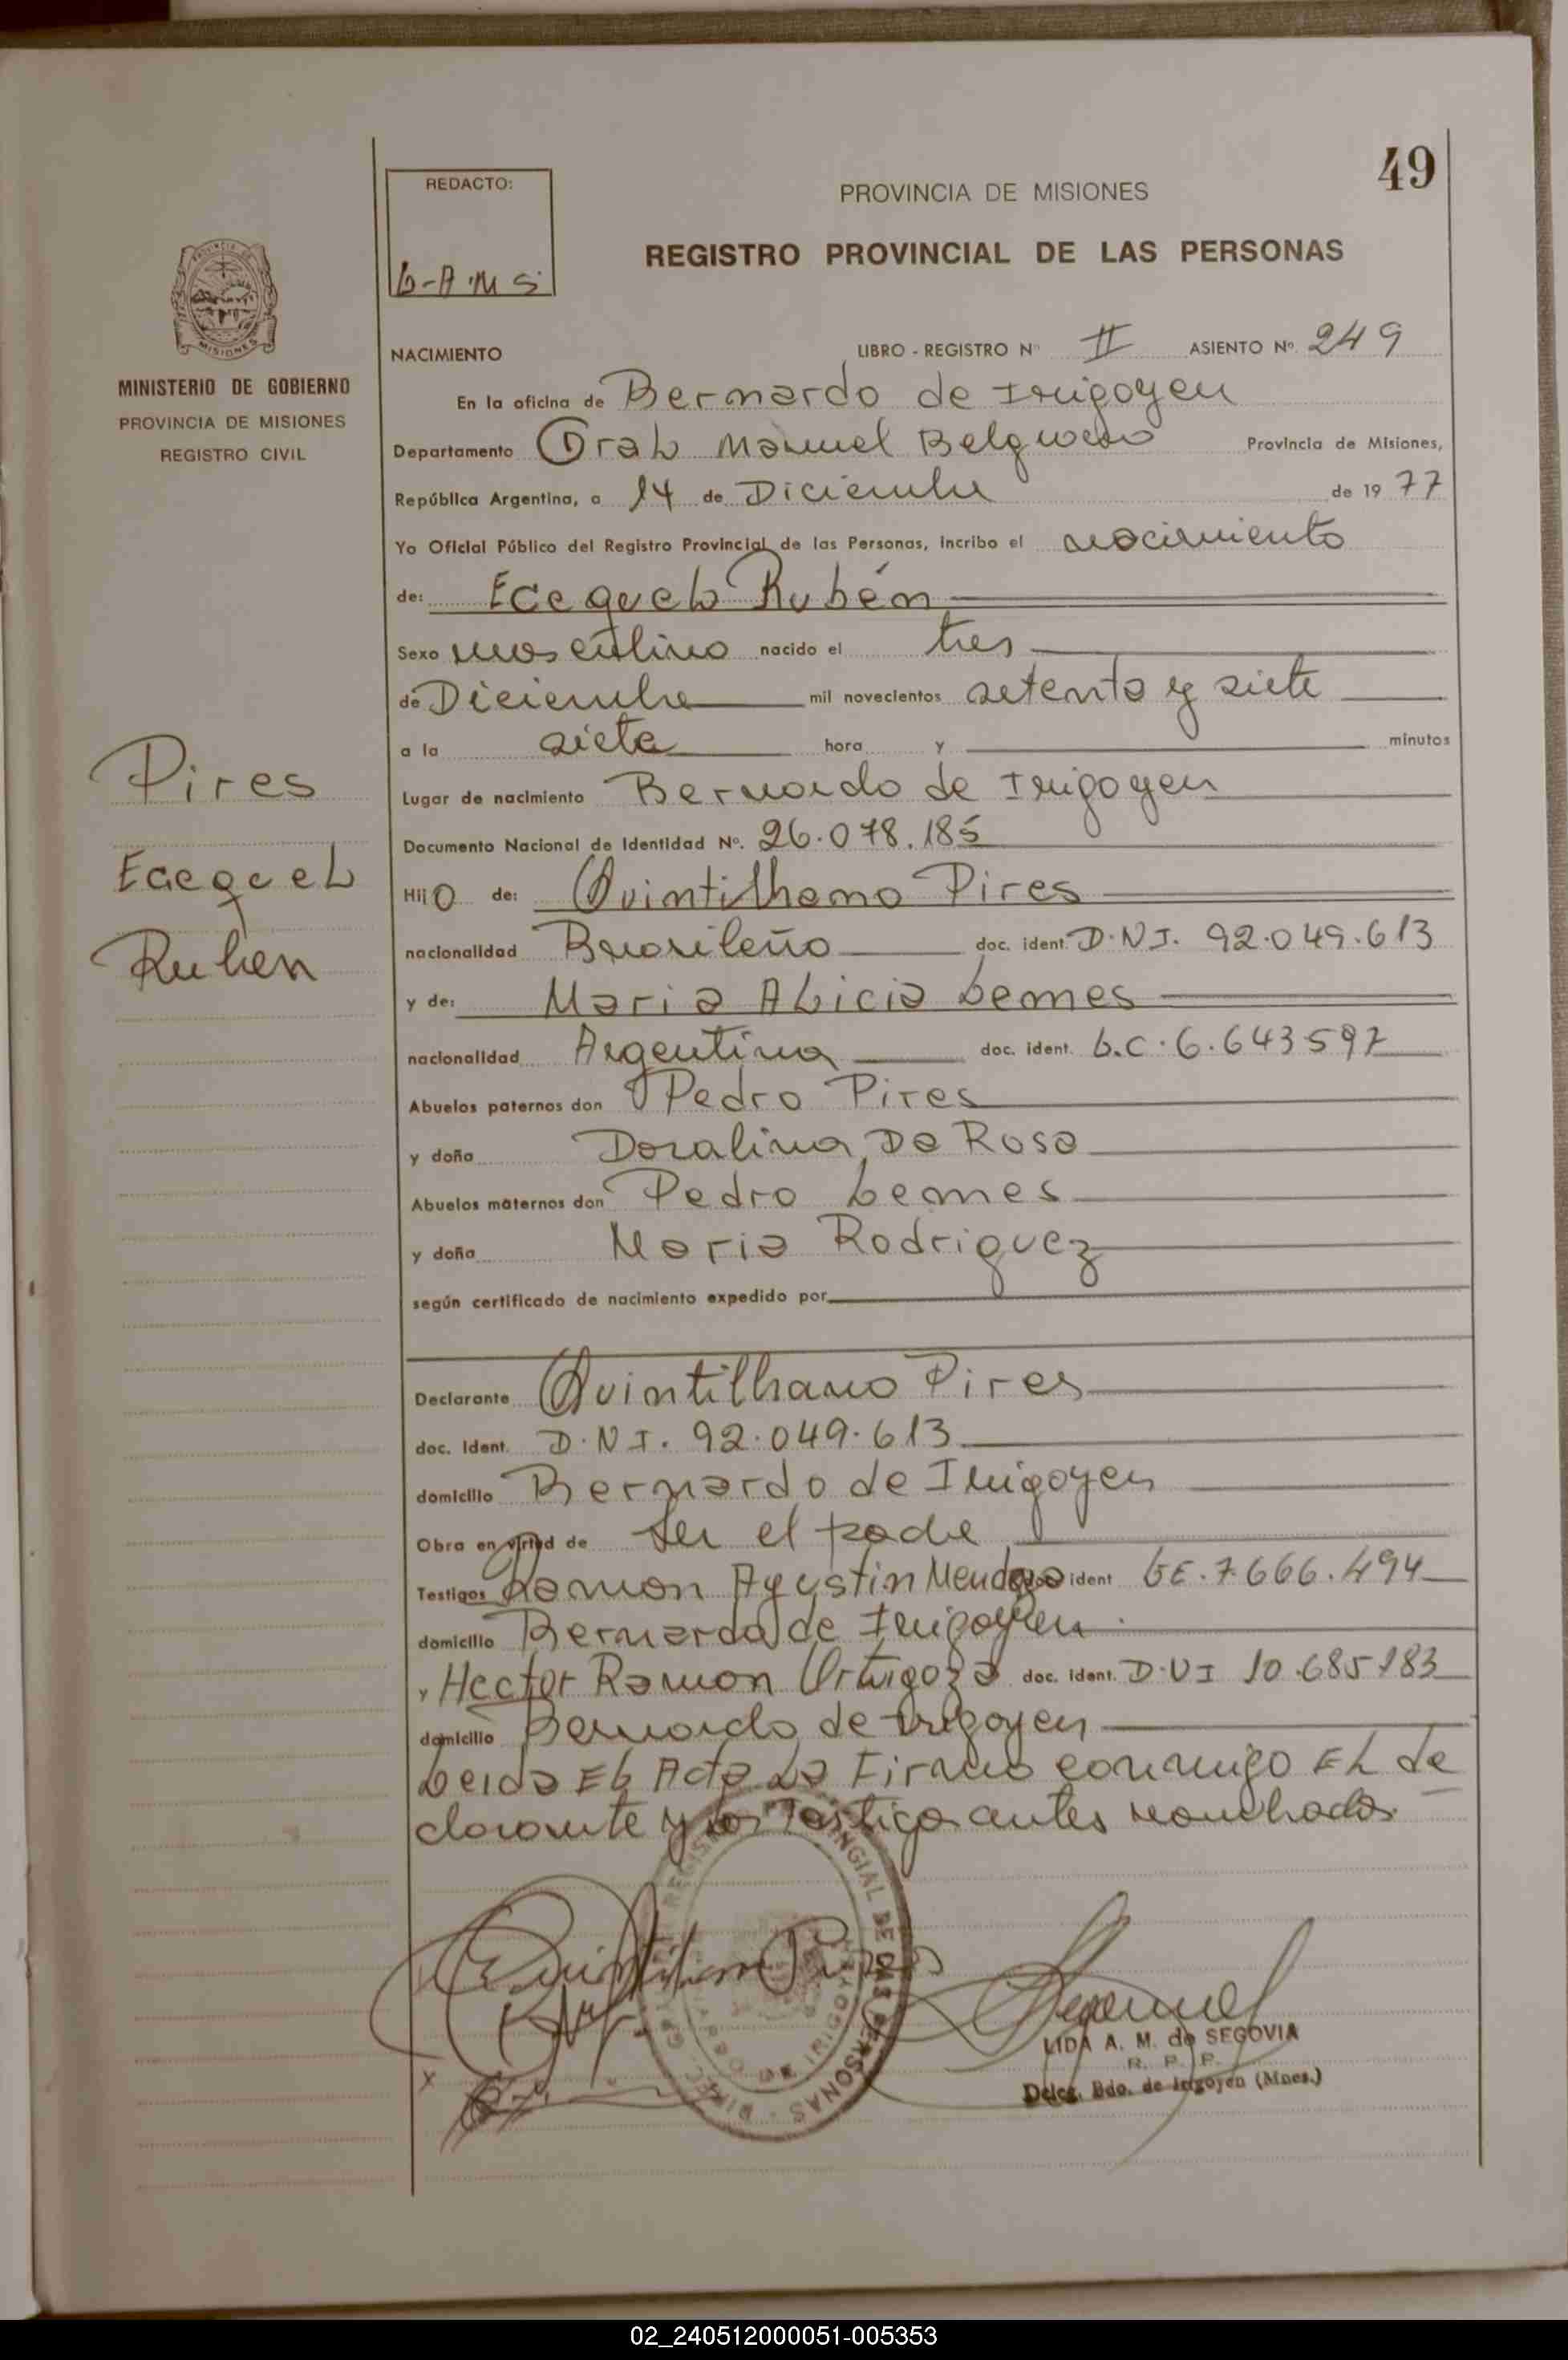 49
REDACTO:
L-A.M S.
PROVINCIA DE MISIONES
REGISTRO PROVINCIAL DE LAS PERSONAS
MISIONES
MINISTERIO DE GOBIERNO
PROVINCIA DE MISIONES
REGISTRO CIVIL
Pires
Ecequel
Ruben
NACIMIENTO LIBRO - REGISTRO Nº II ASIENTO Nº. 249
En la oficina de Bernardo de Irigoyen
Departamento Gral Manuel Belgrano Provincia de Misiones,
República Argentina, a 14 de Diciembre de 19 77
Yo Oficial Público del Registro Provincial de las Personas, incribo el nacimiento
de: Ecequel Rubén
Sexo masculino nacido el tres
de Diciembre mil novecientos setenta y siete
a la siete hora y minutos
Lugar de nacimiento Bernardo de Irigoyen
Documento Nacional de Identidad Nº. 26.078.185
Hijo de: Quintilhano Pires
nacionalidad Brasileño doc. ident. D.N.I. 92.049.613
y de: Maria Alicia Lemes
nacionalidad Argentina doc. ident. L.C. 6.643597
Abuelos paternos don Pedro Pires
y doña Doralina Da Rosa
Abuelos maternos don Pedro Lemes
y doña Maria Rodriguez
según certificado de nacimiento expedido por
Declarante Quintilhano Pires
doc. ident. D.N.I. 92.049.613
domicilio Bernardo de Irigoyen
Obra en virtud de ser el padre
Testigos Ramon Agustin Mendoza doc. ident LE.7.666.494
domicilio Bernardo de Irigoyen
y Hector Ramon Ortigoza doc. ident. D.N.I 10.685183
domicilio Bernardo de Irigoyen
Leida El Acta La Firma conmigo El de
clarante y los Testigos antes nombrados
Quintilhano Pires
LIDA A. M. de SEGOVIA
R. P. P.
Deleg. Bdo. de Irigoyen (Mnes.)
02_240512000051-005353